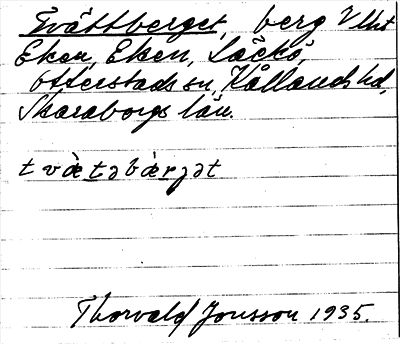 Tvättberget, berg V lht
Eken, Eken, Läckö,
Otterstads sn, Kållands hd,
Skaraborgs län.
t vȁ̀təbàrjət
Thorvald Jonsson 1935.